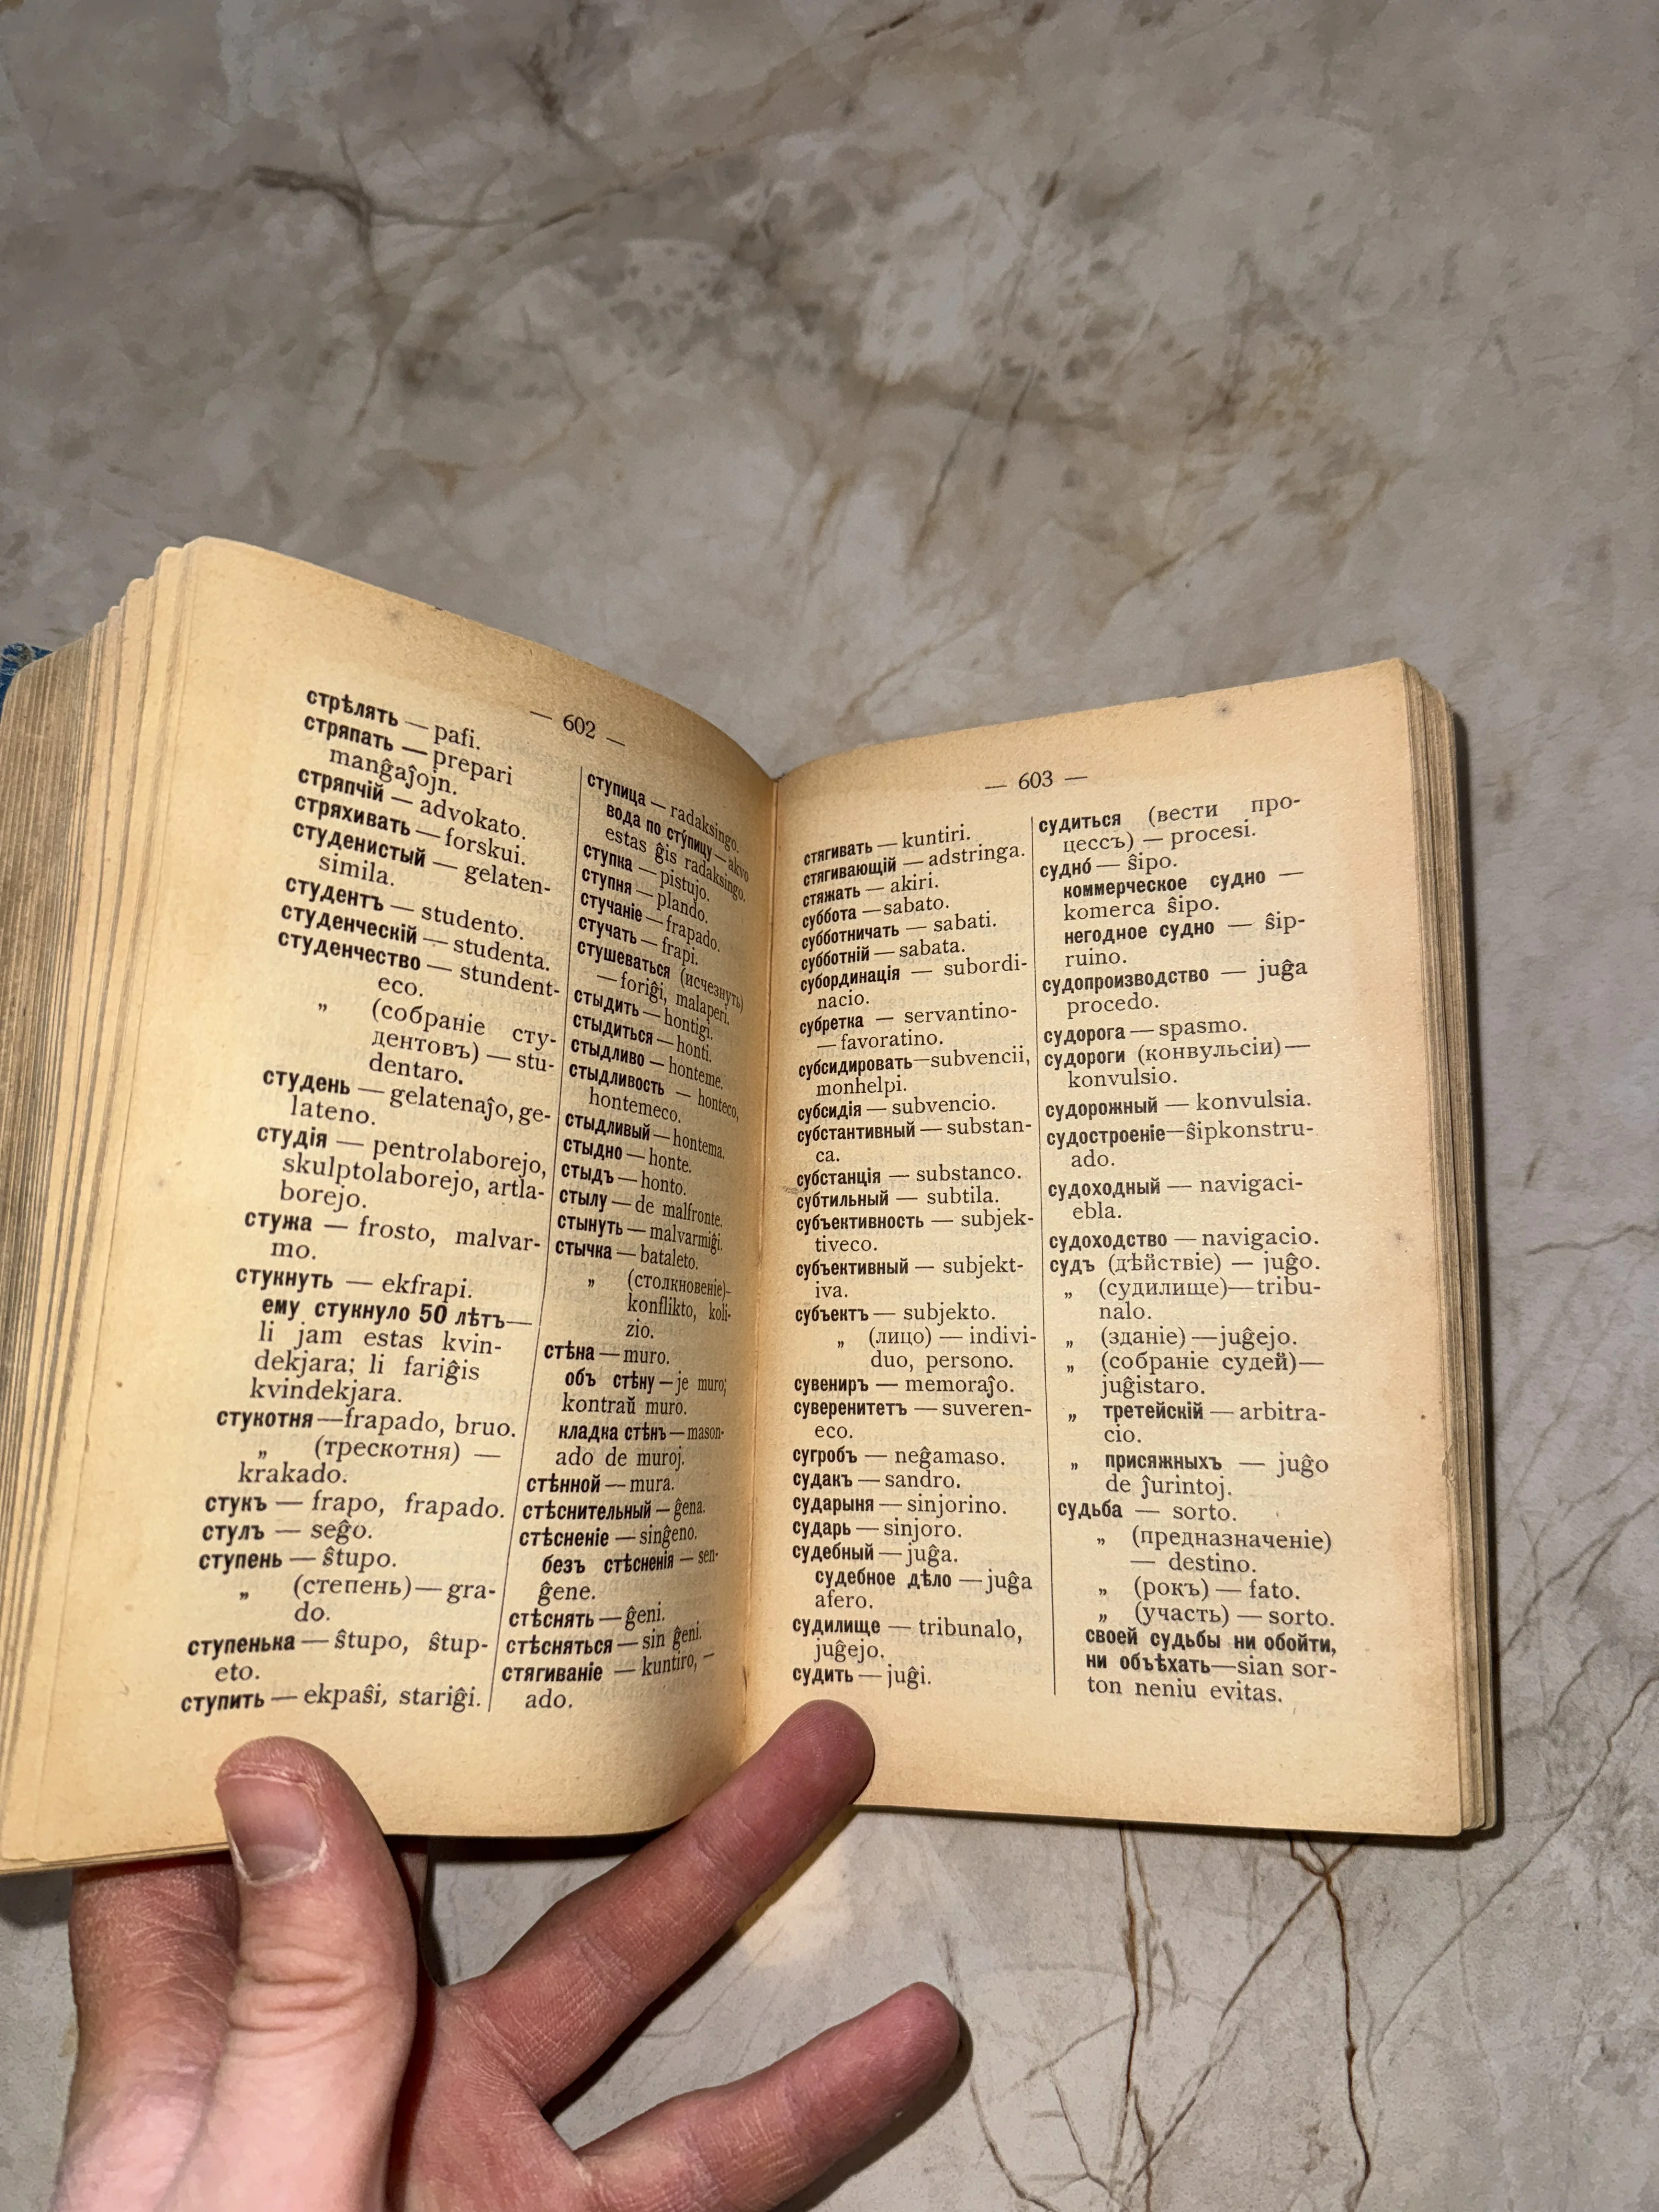 — 602 —
стрѣлять — pafi.
стряпать — prepari
manĝaĵojn.
стряпчій — advokato.
стряхивать — forskui.
студенистый — gelaten-
simila.
студентъ — studento.
студенческій — studenta.
студенчество — stundent-
eco.
„ (собраніе сту-
дентовъ) — stu-
dentaro.
студень — gelatenaĵo, ge-
lateno.
студія — pentrolaborejo,
skulptolaborejo, artla-
borejo.
стужа — frosto, malvar-
mo.
стукнуть — ekfrapi.
ему стукнуло 50 лѣтъ—
li jam estas kvin-
dekjara; li fariĝis
kvindekjara.
стукотня—frapado, bruo.
„ (трескотня) —
krakado.
стукъ — frapo, frapado.
стулъ — seĝo.
ступень — ŝtupo.
„ (степень)— gra-
do.
ступенька — ŝtupo, ŝtup-
eto.
ступить — ekpaŝi, stariĝi.
ступица — radaksingo.
вода по сту́пицу — akvo
estas ĝis radaksingo.
ступка — pistujo.
ступня — plando.
стучаніе — frapado.
стучать — frapi.
стушеваться (исчезнуть)
— foriĝi, malaperi.
стыдить — hontigi.
стыдиться — honti.
стыдливо — honteme.
стыдливость — honteco,
hontemeco.
стыдливый — hontema.
стыдно — honte.
стыдъ — honto.
стылу — de malfronte.
стынуть — malvarmiĝi.
стычка — bataleto.
„ (столкновеніе)-
konflikto, koli-
zio.
стѣна — muro.
объ стѣну — je muro;
kontraŭ muro.
кладка стѣнъ — mason-
ado de muroj.
стѣнной — mura.
стѣснительный — ĝena.
стѣсненіе — sinĝeno.
безъ стѣсненія — sen-
ĝene.
стѣснять — ĝeni.
стѣсняться — sin ĝeni.
стягиваніе — kuntiro, —
ado.
— 603 —
стягивать — kuntiri.
стягивающій — adstringa.
стяжать — akiri.
суббота — sabato.
субботничать — sabati.
субботній — sabata.
субординація — subordi-
nacio.
субретка — servantino-
— favoratino.
субсидировать—subvencii,
monhelpi.
субсидія — subvencio.
субстантивный — substan-
ca.
субстанція — substanco.
субтильный — subtila.
субъективность — subjek-
tiveco.
субъективный — subjekt-
iva.
субъектъ — subjekto.
„ (лицо) — indivi-
duo, persono.
сувениръ — memoraĵo.
суверенитетъ — suveren-
eco.
сугробъ — neĝamaso.
судакъ — sandro.
сударыня — sinjorino.
сударь — sinjoro.
судебный — juĝa.
судебное дѣло — juĝa
afero.
судилище — tribunalo,
juĝejo.
судить — juĝi.
судиться (вести про-
цессъ) — procesi.
судно́ — ŝipo.
коммерческое судно —
komerca ŝipo.
негодное судно — ŝip-
ruino.
судопроизводство — juĝa
procedo.
судорога — spasmo.
судороги (конвульсіи) —
konvulsio.
судорожный — konvulsia.
судостроеніе—ŝipkonstru-
ado.
судоходный — navigaci-
ebla.
судоходство — navigacio.
судъ (дѣйствіе) — juĝo.
„ (судилище)—tribu-
nalo.
„ (зданіе) —juĝejo.
„ (собраніе судей)—
juĝistaro.
„ третейскій — arbitra-
cio.
„ присяжныхъ — juĝo
de ĵurintoj.
судьба — sorto.
„ (предназначеніе)
— destino.
„ (рокъ) — fato.
„ (участь) — sorto.
своей судьбы ни обойти,
ни объѣхать—sian sor-
ton neniu evitas.